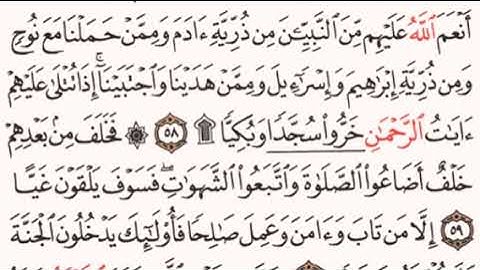 أَنْعَمَ ٱللَّهُ عَلَيْهِم مِّنَ ٱلنَّبِيِّـۧنَ مِن ذُرِّيَّةِ ءَادَمَ وَمِمَّنْ حَمَلْنَا مَعَ نُوحٍ
وَمِن ذُرِّيَّةِ إِبْرَٰهِيمَ وَإِسْرَٰٓءِيلَ وَمِمَّنْ هَدَيْنَا وَٱجْتَبَيْنَآ ۚ إِذَا تُتْلَىٰ عَلَيْهِمْ
ءَايَٰتُ ٱلرَّحْمَٰنِ خَرُّوا۟ سُجَّدًا وَبُكِيًّا ۩ ٥٨ ۞ فَخَلَفَ مِنۢ بَعْدِهِمْ
خَلْفٌ أَضَاعُوا۟ ٱلصَّلَوٰةَ وَٱتَّبَعُوا۟ ٱلشَّهَوَٰتِ ۖ فَسَوْفَ يَلْقَوْنَ غَيًّا
٥٩ إِلَّا مَن تَابَ وَءَامَنَ وَعَمِلَ صَٰلِحًا فَأُو۟لَٰٓئِكَ يَدْخُلُونَ ٱلْجَنَّةَ